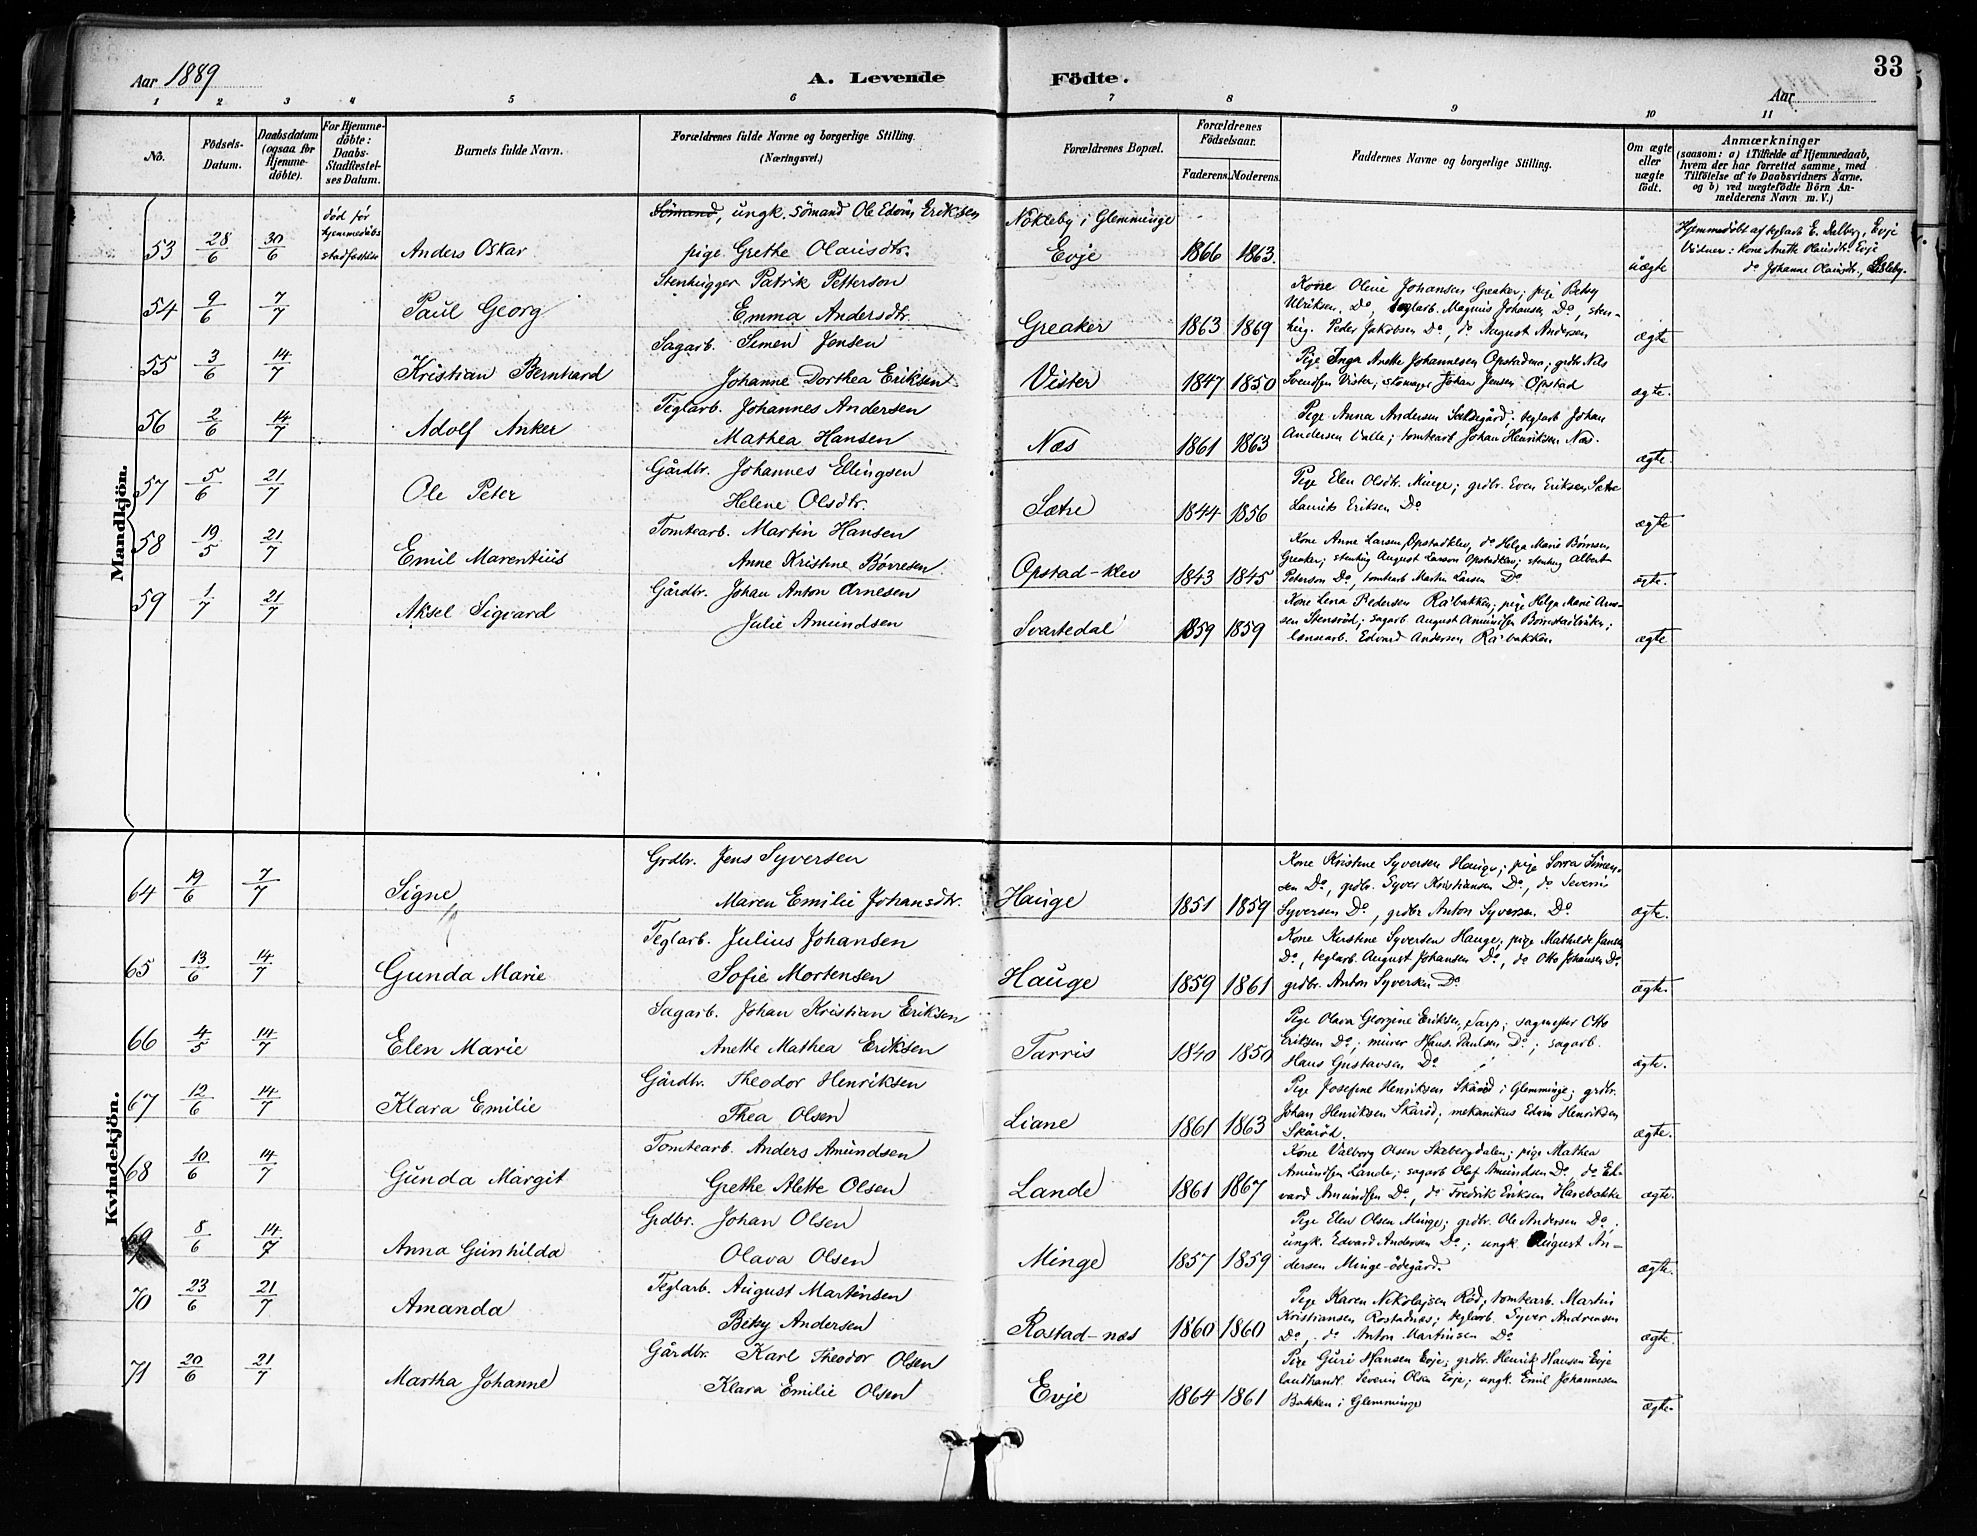 33
Aar 1889
A. Levende Födte.
Aar
1 2 3 4 5 6 7 8 9 10 11
No.
Födsels-Datum.
Daabsdatum (ogsaa for Hjemme-döbte).
For Hjemme-döbte: Daabs-Stadfæstel-ses Datum.
Barnets fulde Navn.
Forældrenes fulde Navne og borgerlige Stilling. (Næringsvei.)
Forældrenes Bopæl.
Forældrenes Födselsaar.
Faderens. Moderens.
Faddernes Navne og borgerlige Stilling.
Om ægte eller uægte födt.
Anmærkninger
(saasom: a) i Tilfælde af Hjemmedaab,
hvem der har forrettet samme, med
Tilföielse af to Daabsvidners Navne.
og b) ved uægtefödte Börn An-
melderens Navn m. V.)
Mandkjön.
53 28/6 30/6 død før hjemmedåbs stadfæstelse Anders Oskar
Sömand, ungk. sömand Ole Edvin Eriksen
pige Grethe Olausdtr.
Nökleby i Glemminge
Evje 1866 1863. uægte
Hjemmedöbt af teglarb. E. Dalberg, Evje
Vidner: Kone Anette Olausdtr. Evje
do Johanne Olausdtr.,
54 9/6 7/7 Paul Georg
Stenhugger Patrik Petterson
Emma Andersdtr.
Greaker 1863 1869
Kone Oline Johansen Greaker; pige Betsy
Ulriksen Do, teglarb. Magnus Johansen Do, sten-
hug. Peder Jakobsen Do, do August Andersen
ægte
55 3/6 14/7 Kristian Bernhard
Sagarb. Simen Jensen
Johanne Dorthea Eriksen
Vister 1847 1850
Pige Inga Anette Johannesen Opstad; grdbr. Nils
Svendsen Vister; Johan Jensen Opstad
ægte.
56 2/6 14/7 Adolf Anker
Teglarb. Johannes Andersen
Mathea Hansen
Næs 1861 1863
Pige Anna Andersen; teglarb Johan
Andersen Valle; tomtearb Johan Henriksen Næs.
ægte.
57 5/6 21/7 Ole Peter
Gårdbr. Johannes Ellingsen
Helene Olsdtr.
Sætre 1844 1856
Pige Elen Olsdtr. Minge; grdbr. Even Eriksen Sætre
Lauritz Eriksen Do
ægte
58 19/5 21/7 Emil Marentius
Tomtearb. Martin Hansen
Anne Kristine Børresen
Opstad-klev 1843 1845
Kone Anne Larsen, Opstadklev, do Helga Marie Børresen
Greaker; stenhug August Larsen Opstadklev; stenhug Albert
Peterson Do, tomtearb Martin Larsen Do
ægte.
59 1/7 21/7 Aksel Sigvard
Gårdbr. Johan Anton Arnesen
Julie Amundsen
Svartedal 1859 1859
Kone Lena Pedersen Råbakken; pige Helga Marie Arne-
sen Stensröd; sagarb August Amundsen;
lensearb. Edvard Andersen Råbakken.
ægte
Kvindekjön.
64 19/6 7/7 Signe
Grdbr. Jens Syversen
Maren Emilie Johansdtr.
Hauge 1851 1859
Kone Kristine Syversen Hauge; pige Simen-
sen Do, grdbr. Syver Kristiansen Do, do Severin
Syversen Do, grdbr Anton Syversen Do
ægte.
65 13/6 14/7 Gunda Marie
Teglarb. Julius Johansen
Sofie Mortensen
Hauge 1859 1861
Kone Kirstine Syversen Hauge; pige Mathilde Jansen
Do, teglarb. August Johansen Do, do Otto Johansen Do
grdbr. Anton Syversen Do
ægte.
66 4/5 14/7 Elen Marie
Sagarb. Johan Kristian Eriksen
Anette Mathea Eriksen
Tarris 1840 1850
Pige Olava Georgine Eriksen, Sarp; sagmester Otto
Eriksen Do; murer Hans Paulsen Do; sagarb.
Hans Gustavsen Do
ægte.
67 12/6 14/7 Klara Emilie
Gårdbr. Theodor Henriksen
Thea Olsen
Liane 1861 1863
Pige Josefine Henriksen Skåröd i Glemminge; grdbr.
Johan Henriksen Skåröd; mekanikus Edvin Henriksen
Skåröd.
ægte.
68 10/6 14/7 Gunda Margit
Tomtearb. Anders Amundsen
Grethe Alette Olsen
Lande 1861 1867
Kone Valborg Olsen Skebergdalen; pige Mathea
Amundsen Lande; sagarb Olaf Amundsen Do, do Ed-
vard Amundsen Do, do Fredrik Eriksen Harebakke
ægte.
69 8/6 14/7 Anna Gunhilda
Grdbr. Johan Olsen
Olava Olsen
Minge 1857 1859
Pige Elen Olsen Minge; grdbr. Ole Andersen Do;
ungk. Edvard Andersen Do; ungk. August An-
dersen Minge-ödegård.
ægte.
70 23/6 21/7 Amanda
Teglarb. August Martinsen
Betsy Andersen
Rostad-næs 1860 1860
Pige Karen Nikolajsen Röd, tomtearb. Martin
Kristiansen Rostadnæs; teglarb. Syver Andreasen
Do, do Anton Martinsen Do
ægte
71 20/6 21/7 Martha Johanne
Gårdbr. Karl Theodor Olsen
Klara Emilie Olsen
Evje 1864 1861
Pige Guri Hansen Evje; grdbr. Henrik Hansen Evje
landhandl. Severin Olsen Evje; ungk. Emil Johannesen
Bakken i Glemminge
ægte.